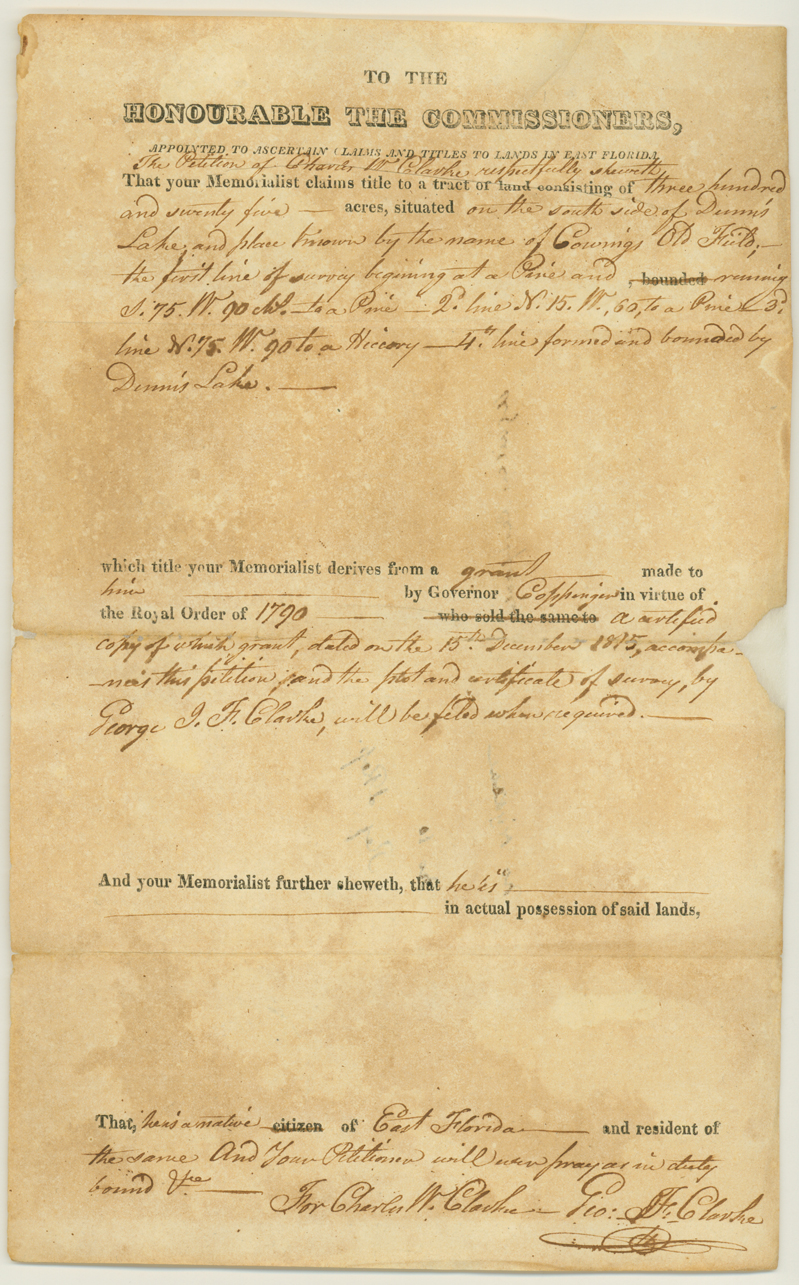 TO THE
HONOURABLE THE COMMISSIONERS,
APPOINTED TO ASCERTAIN CLAIMS AND TITLES TO LANDS IN EAST FLORIDA.
The Petition of Charles W. Clarke respectfully sheweth
That your Memorialist claims title to a tract of land consisting of three hundred
and twenty five — acres, situated on the south side of Dunn's
Lake, and place known by the name of Cowings Old Field; —
the first line of survey begining at a Pine and , bounded running
S. 75. W. 90 chs. to a Pine — 2d. line N. 15. W., 60, to a Pine — 3d.
line N. 75. W. 90 to a Hiccory — 4th. line formed and bounded by
Dunn's Lake. —
which title your Memorialist derives from a grant made to
him by Governor Coppinger in virtue of
the Royal Order of 1790 who sold the same to a certified
copy of which grant, dated on the 15th. December 1815, accompa-
-nies this petition, and the plot and certificate of survey, by
George J. F. Clarke, will be filed when required. —
And your Memorialist further sheweth, that he is
in actual possession of said lands,
That, he is a native citizen of East Florida and resident of
the same And Your Petitioner will ever pray as in duty
bound &ce —
For Charles W. Clarke — Geo: J. F. Clarke